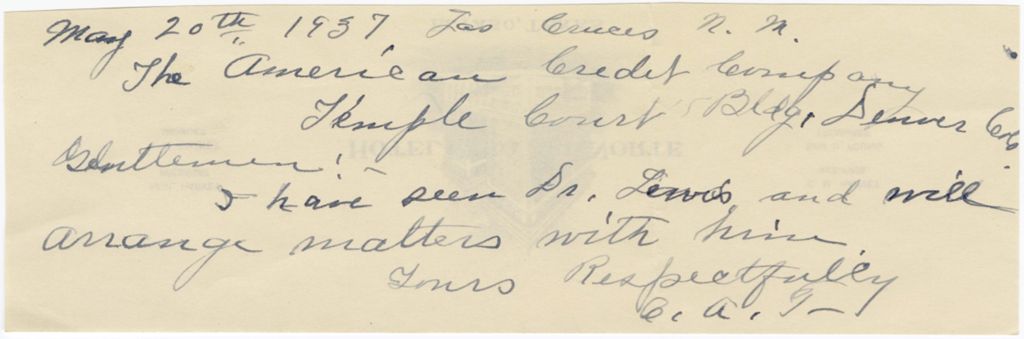 May 20th 1937 Las Cruces N. M.
The American Credit Company
Temple Court Bldg, Denver Colo.
Gentlemen! -
I have seen Dr. Lewis and will
arrange matters with him.
Yours Respectfully
C. A. T-